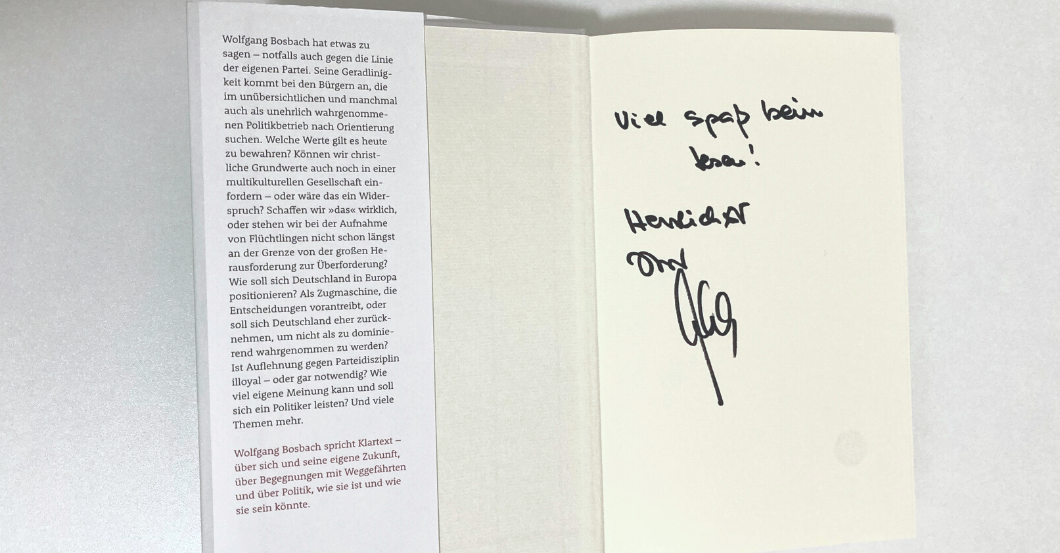 Wolfgang Bosbach hat etwas zu
sagen – notfalls auch gegen die Linie
der eigenen Partei. Seine Geradlinig-
keit kommt bei den Bürgern an, die
im unübersichtlichen und manchmal
auch als unehrlich wahrgenomme-
nen Politikbetrieb nach Orientierung
suchen. Welche Werte gilt es heute
zu bewahren? Können wir christ-
liche Grundwerte auch noch in einer
multikulturellen Gesellschaft ein-
fordern – oder wäre das ein Wider-
spruch? Schaffen wir »das« wirklich,
oder stehen wir bei der Aufnahme
von Flüchtlingen nicht schon längst
an der Grenze von der großen He-
rausforderung zur Überforderung?
Wie soll sich Deutschland in Europa
positionieren? Als Zugmaschine, die
Entscheidungen vorantreibt, oder
soll sich Deutschland eher zurück-
nehmen, um nicht als zu dominie-
rend wahrgenommen zu werden?
Ist Auflehnung gegen Parteidisziplin
illoyal – oder gar notwendig? Wie
viel eigene Meinung kann und soll
sich ein Politiker leisten? Und viele
Themen mehr.
Wolfgang Bosbach spricht Klartext –
über sich und seine eigene Zukunft,
über Begegnungen mit Weggefährten
und über Politik, wie sie ist und wie
sie sein könnte.
Viel Spaß beim
Lesen!
Herzlichst